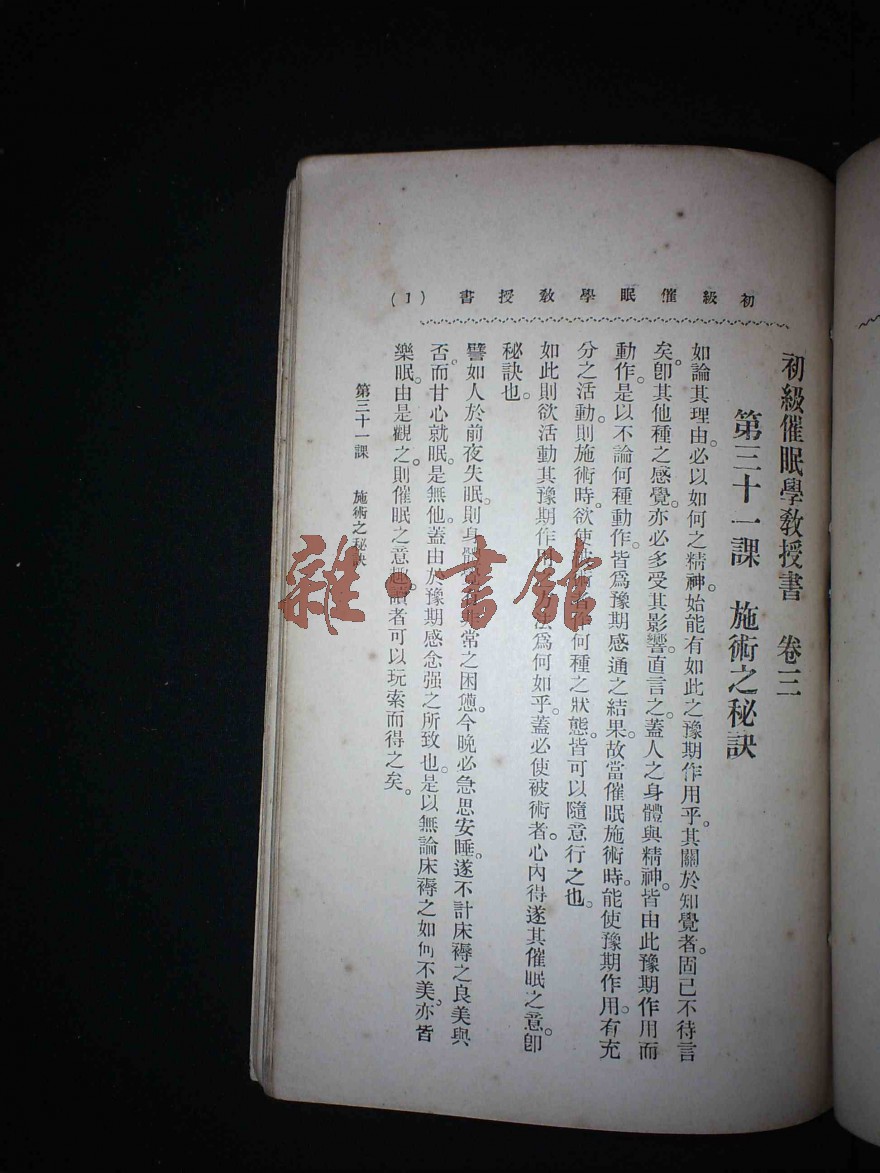 初級催眠學教授書 (1)
初級催眠學教授書 卷三
第三十一課 施術之秘訣
如論其理由。必以如何之精神。始能有如此之豫期作用乎。其關於知覺者。固已不待言
矣。卽其他種之感覺。亦必多受其影響。直言之。蓋人之身體與精神。皆由此豫期作用而
動作。是以不論何種動作。皆爲豫期感通之結果。故當催眠施術時。能使豫期作用。有充
分之活動。則施術時。欲使被術者作何種之狀態。皆可以隨意行之也。
如此則欲活動其豫期作用 法爲何如乎。蓋必使被術者。心內得遂其催眠之意。卽
秘訣也。
譬如人於前夜失眠。則身體 非常之困憊。今晚必急思安睡。遂不計床褥之良美與
否。而甘心就眠。是無他。蓋由於豫期感念强之所致也。是以無論床褥之如何不美。亦皆
樂眠。由是觀之。則催眠之意趣。讀者可以玩索而得之矣。
第三十一課 施術之秘訣
雜·書館